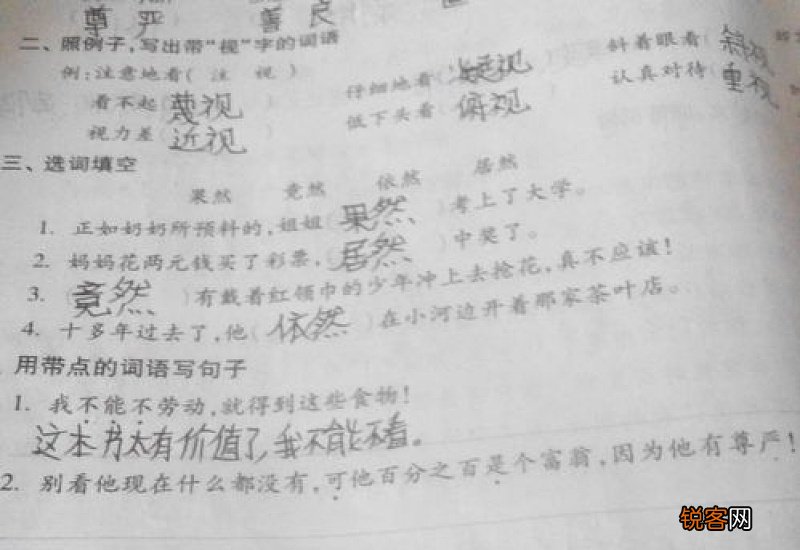 尊 严 善 良
二、照例子,写出带“视”字的词语
例:注意地看( 注 视 ) 仔细地看( 视 斜着眼看( 斜视
看不起 蔑视 ) 低下头看( 俯视 ) 认真对待 重视
视力差 近视 )
三、选词填空
果然 竟然 依然 居然
1. 正如奶奶所预料的,姐姐 果然 考上了大学。
2. 妈妈花两元钱买了彩票, 居然 中奖了。
3. ( 竟然 )有戴着红领巾的少年冲上去抢花,真不应该!
4. 十多年过去了,他( 依然 )在小河边开着那家茶叶店。
用带点的词语写句子
1. 我不能不劳动,就得到这些食物!
这本书太有价值了,我不能不看。
2. 别看他现在什么都没有,可他百分之百是个富翁,因为他有尊严!
锐客网